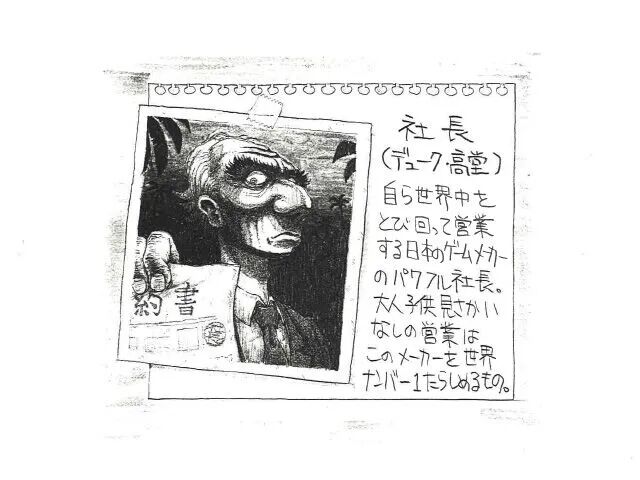 社長
(デューク・高堂)
自ら世界中を
とび回って営業
する日本のゲームメーカー
のパワフル社長。
大人子供見さかい
なしの営業は
このメーカーを世界
ナンバー1たらしめるもの。
約書